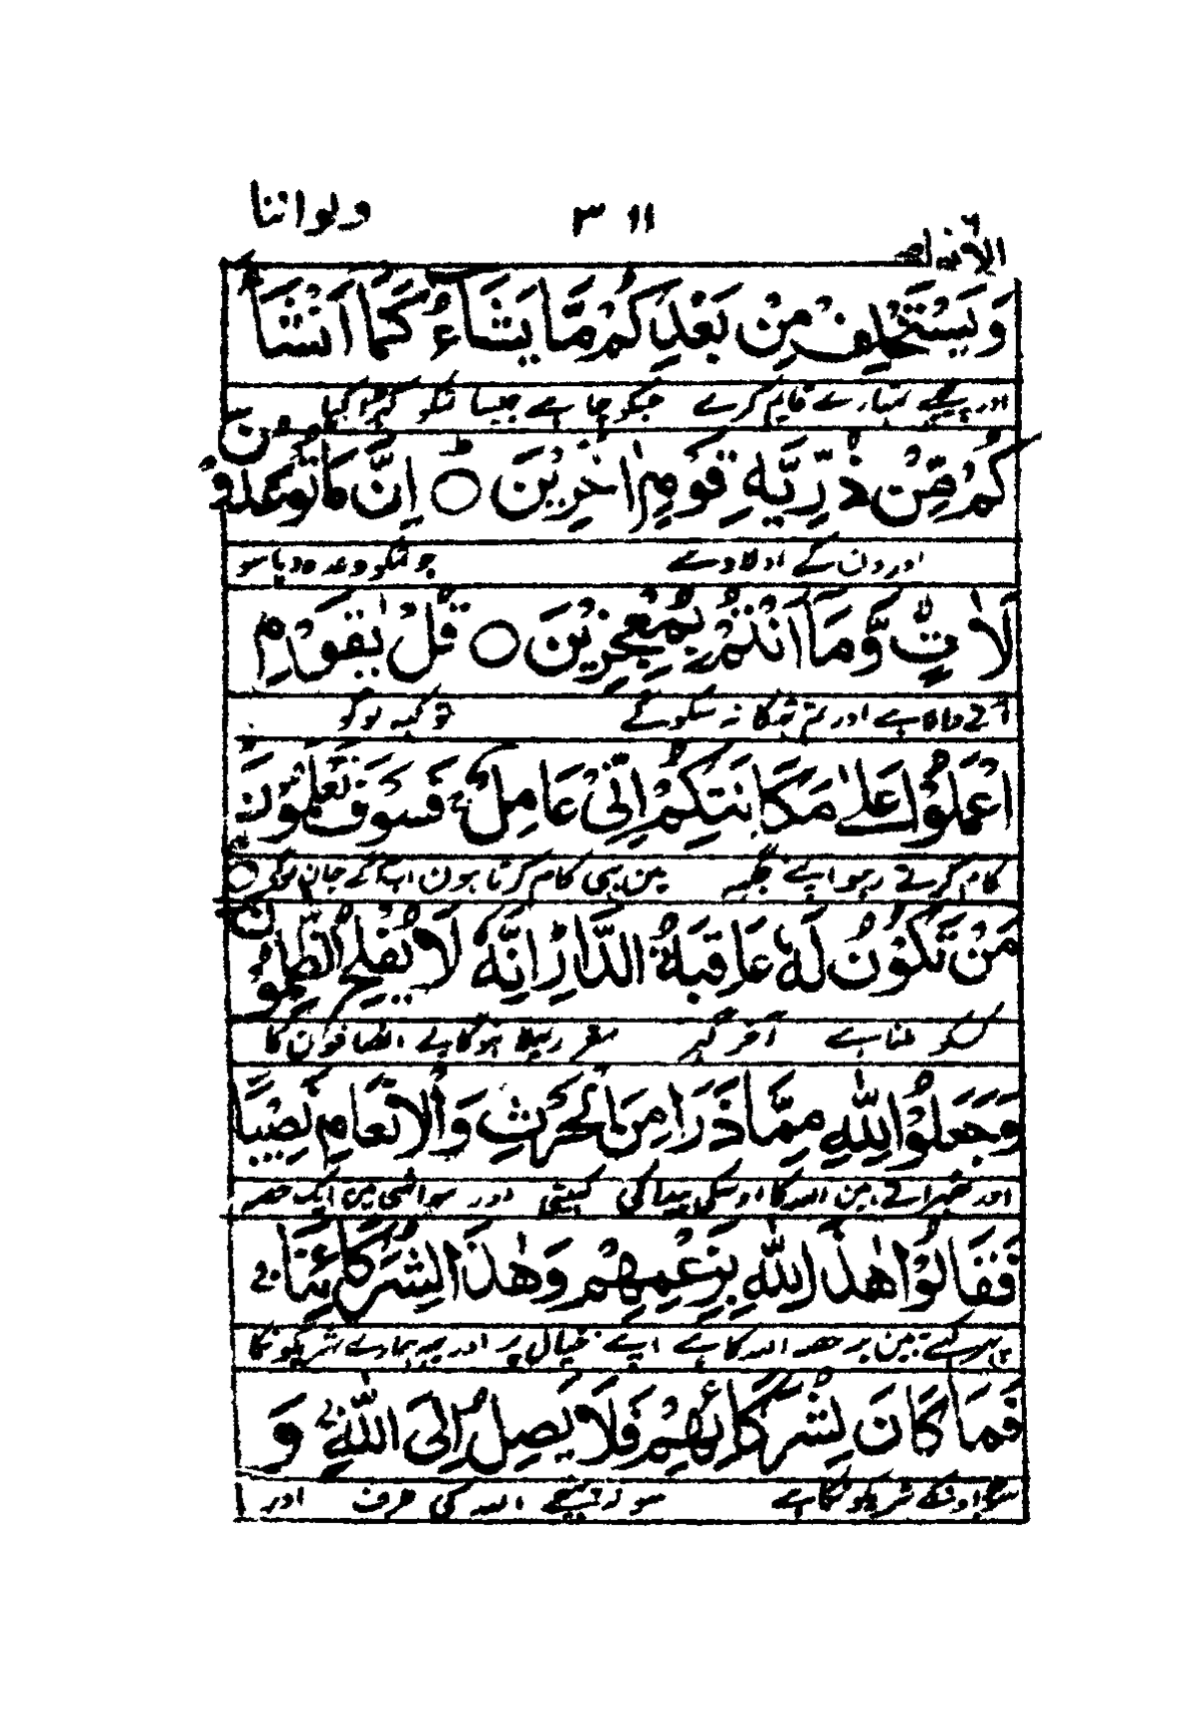 ولواننا ٣١١ الانعام ٦
وَيَسْتَخْلِفْ مِنْ بَعْدِكُمْ مَّا يَشَاءُ كَمَا اَنْشَاَ
اور پیچھے تمہارے قایم کرے جسکو چاہے جیسا تمکو کھڑا کیا
كُمْ مِّنْ ذُرِّيَّةِ قَوْمٍ اٰخَرِيْنَ ○ اِنَّ مَا تُوْعَدُوْنَ
اوروں کے اولاد سے جو تمکو وعدہ دیا سو
لَاٰتٍ وَّمَا اَنْتُمْ بِمُعْجِزِيْنَ ○ قُلْ يٰقَوْمِ
آنے والا ہے اور تم تھکا نہ سکوگے تو کہہ لوگو
اعْمَلُوْا عَلٰى مَكَانَتِكُمْ اِنِّىْ عَامِلٌ فَسَوْفَ تَعْلَمُوْنَ ○
کام کرتے رہو اپنے جگہہ میں بھی کام کرتا ہوں اب آگے جان لوگے
مَنْ تَكُوْنُ لَهٗ عَاقِبَةُ الدَّارِ اِنَّهٗ لَا يُفْلِحُ الظّٰلِمُوْنَ
کسکو ملتا ہے آخر گھر مقرر بھلا نہوگا بے انصافوں کا
وَجَعَلُوْا لِلّٰهِ مِمَّا ذَرَاَ مِنَ الْحَرْثِ وَالْاَنْعَامِ نَصِيْبًا
اور ٹھہراتے ہیں اللہ کا اوسکی پیدا کی کھیتی اور مواشی میں ایک حصہ
فَقَالُوْا هٰذَا لِلّٰهِ بِزَعْمِهِمْ وَهٰذَا لِشُرَكَائِنَا
پھر کہتے ہیں یہ حصہ اللہ کا ہے اپنے خیال پر اور یہ ہمارے شریکونکا
فَمَا كَانَ لِشُرَكَائِهِمْ فَلَا يَصِلُ اِلَى اللّٰهِ وَ
سو جو اونکے شریکونکا ہے سو نہ پہنچے اللہ کی طرف اور